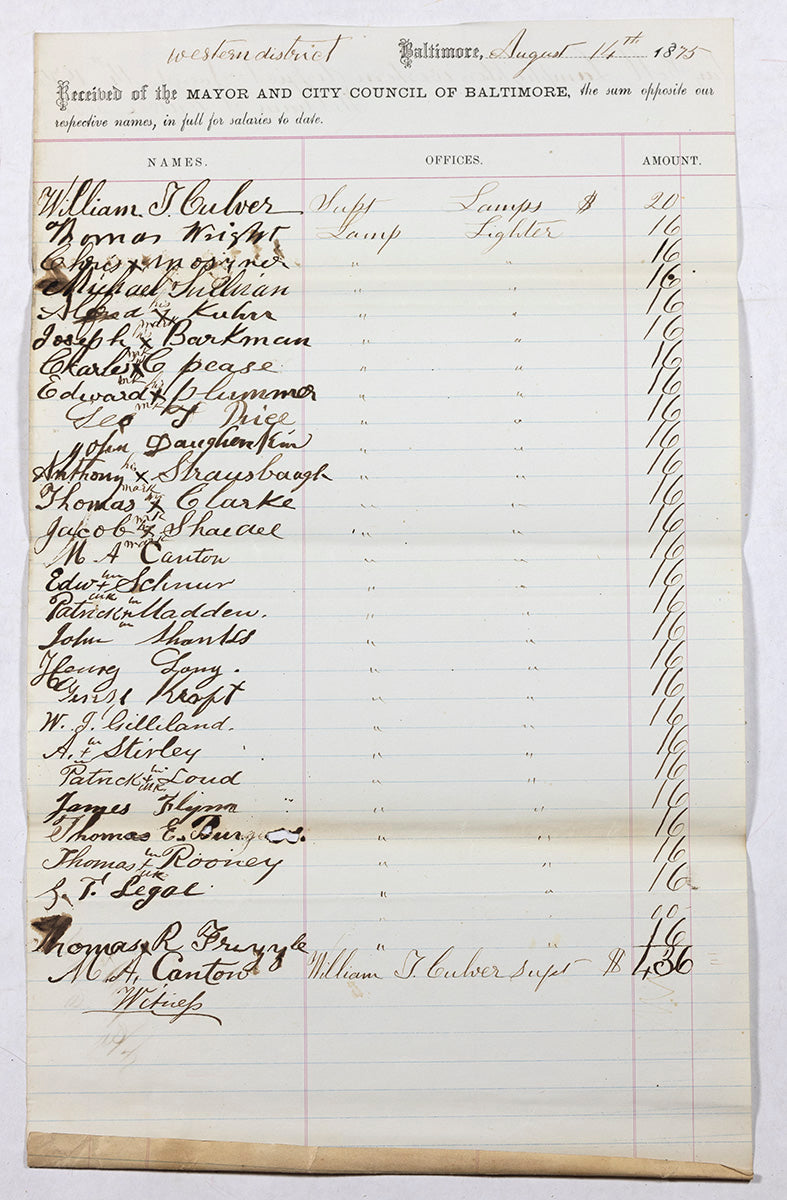 western district Baltimore, August 14th 1875
Received of the MAYOR AND CITY COUNCIL OF BALTIMORE, the sum opposite our
respective names, in full for salaries to date.
NAMES. OFFICES. AMOUNT.
William T. Culver Supt Lamps $ 20
Thomas Wright Lamp Lighter 16
Chris x " " 16
Michael Sullivan " " 16
his x mark Kuhn " " 16
Joseph his x mrk Barkman " " 16
Charles x mk C pease " " 16
Edward his x mk plummer " " 16
Geo T Price " " 16
John " " 16
Anthony his x mark Strausbaugh " " 16
Thomas his x mrk Clarke " " 16
Jacob his x mark Shaidel " " 16
M A Canton " " 16
Edw his + mrk Schnur " " 16
Patrick his + Madden. " " 16
John Shanks " " 16
Henry Long. " " 16
Kraft " " 16
W. J. Gilliland. " " 16
A. his + Stirley " " 16
Patrick his + mk Loud " " 16
James Flynn " " 16
Thomas E. Burgess. " " 16
Thomas his + mk Rooney " " 16
T. Legal " " 16
" " 00
Thomas R " " 16
M. A. Canton William T. Culver supt $ 436
Witness